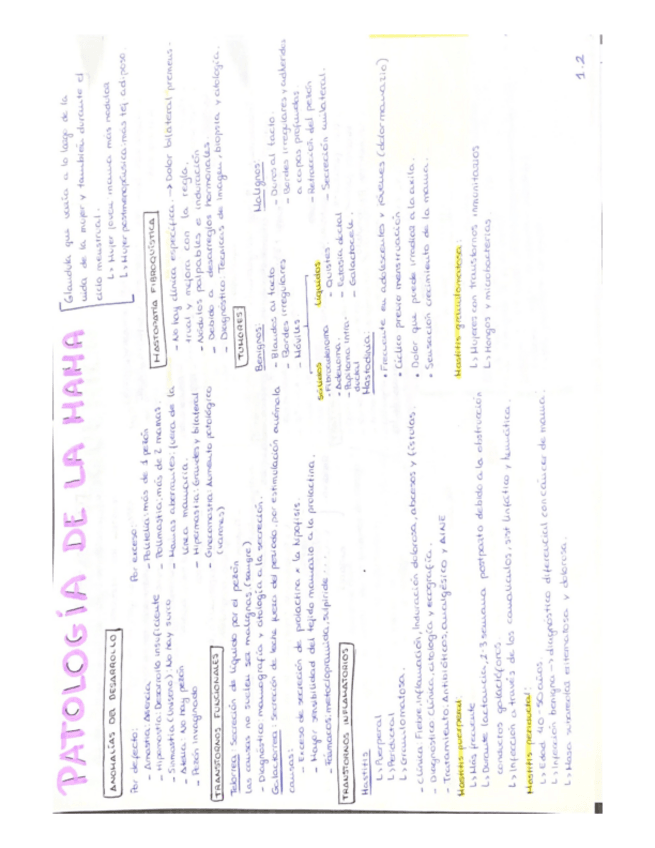 PATOLOGÍA DE LA MAMA
Glándula que varía a lo largo de la
vida de la mujer y también durante el
ciclo menstrual.
↳ Mujer joven mama más nódulos
↳ Mujer postmenopáusica más tej adiposo
ANOMALÍAS DEL DESARROLLO
Por defecto:
- Amastia: Ausencia
- Hipomastia: Desarrollo insuficiente
- Sinmastia (uniseno): No hay surco
- Atelia: No hay pezón
- Pezón invaginado
Por exceso:
- Politelia: más de 1 pezón
- Polimastia: más de 2 mamas
- Mamas aberrantes: fuera de la
línea mamaria.
- Hipermastia: Grandes y bilateral
- Ginecomastia: Aumento patológico
(varones)
TRANSTORNOS FUNCIONALES
Telorrea: Secreción de líquido por el pezón
Las causas no suelen ser malignas (sangre)
- Diagnóstico mamografía y citología a la secreción.
Galactorrea: Secreción de leche fuera del periodo, por estimulación anómala
causas:
- Exceso de secreción de prolactina x la hipófisis.
- Mayor sensibilidad del tejido mamario a la prolactina.
- Fármacos: metoclopramida, sulpiride...
TRANSTORNOS INFLAMATORIOS
Mastitis
↳ Puerperal
↳ Periductal
↳ Granulomatosa.
- Clínica: Fiebre, inflamación, Induración dolorosa, abscesos y fístulas.
- Diagnóstico: Clínica, citología y ecografía.
- Tratamiento: Antibióticos, analgésico y AINE
Mastitis puerperal:
↳ Más frecuente
↳ Durante lactancia, 2-3 semana postparto debido a la obstrucción
conductos galactóforos
↳ Infección a través de los canalículos, sist linfático y hemática.
Mastitis periductal:
↳ Edad 40-50 años.
↳ Infección benigna → diagnóstico diferencial con cáncer de mama.
↳ Masa subareolar eritematosa y dolorosa.
MASTOPATÍA FIBROQUÍSTICA
- No hay clínica específica. → Dolor bilateral premens-
trual y mejora con la regla.
- Nódulos palpables e induración
- Debido a desarreglos hormonales.
- Diagnóstico: Técnicas de imagen, biopsia y citología.
TUMORES
Benignos:
- Blandos al tacto
- Bordes irregulares
- Móviles
Sólidos
- Fibroadenoma
- Adenoma.
- Papiloma intra-
ductal
Líquidos
- Quistes
- Ectasia ductal
- Galactocele.
Malignos:
- Duros al tacto.
- Bordes irregulares y adheridos
a capas profundas
- Retracción del pezón
- Secreción unilateral.
Mastodinia:
• Frecuente en adolescentes y jóvenes (dolor mamario)
• Cíclico previo menstruación
• Dolor que puede irradiar a la axila.
• Sensación crecimiento de la mama.
Mastitis granulomatosa:
↳ Mujeres con transtornos inmunitarios
↳ Hongos y micobacterias
1.2